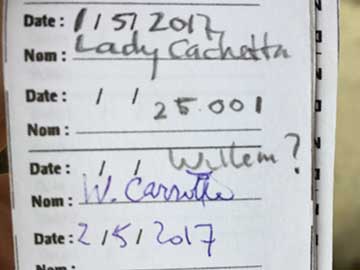 Date : 1/5/2017
Nom : Lady Cachetta
Date : / / 25.001
Nom :
Date : / / Willem ?
Nom : W. Carrotte
Date : 2/5/2017
Nom :